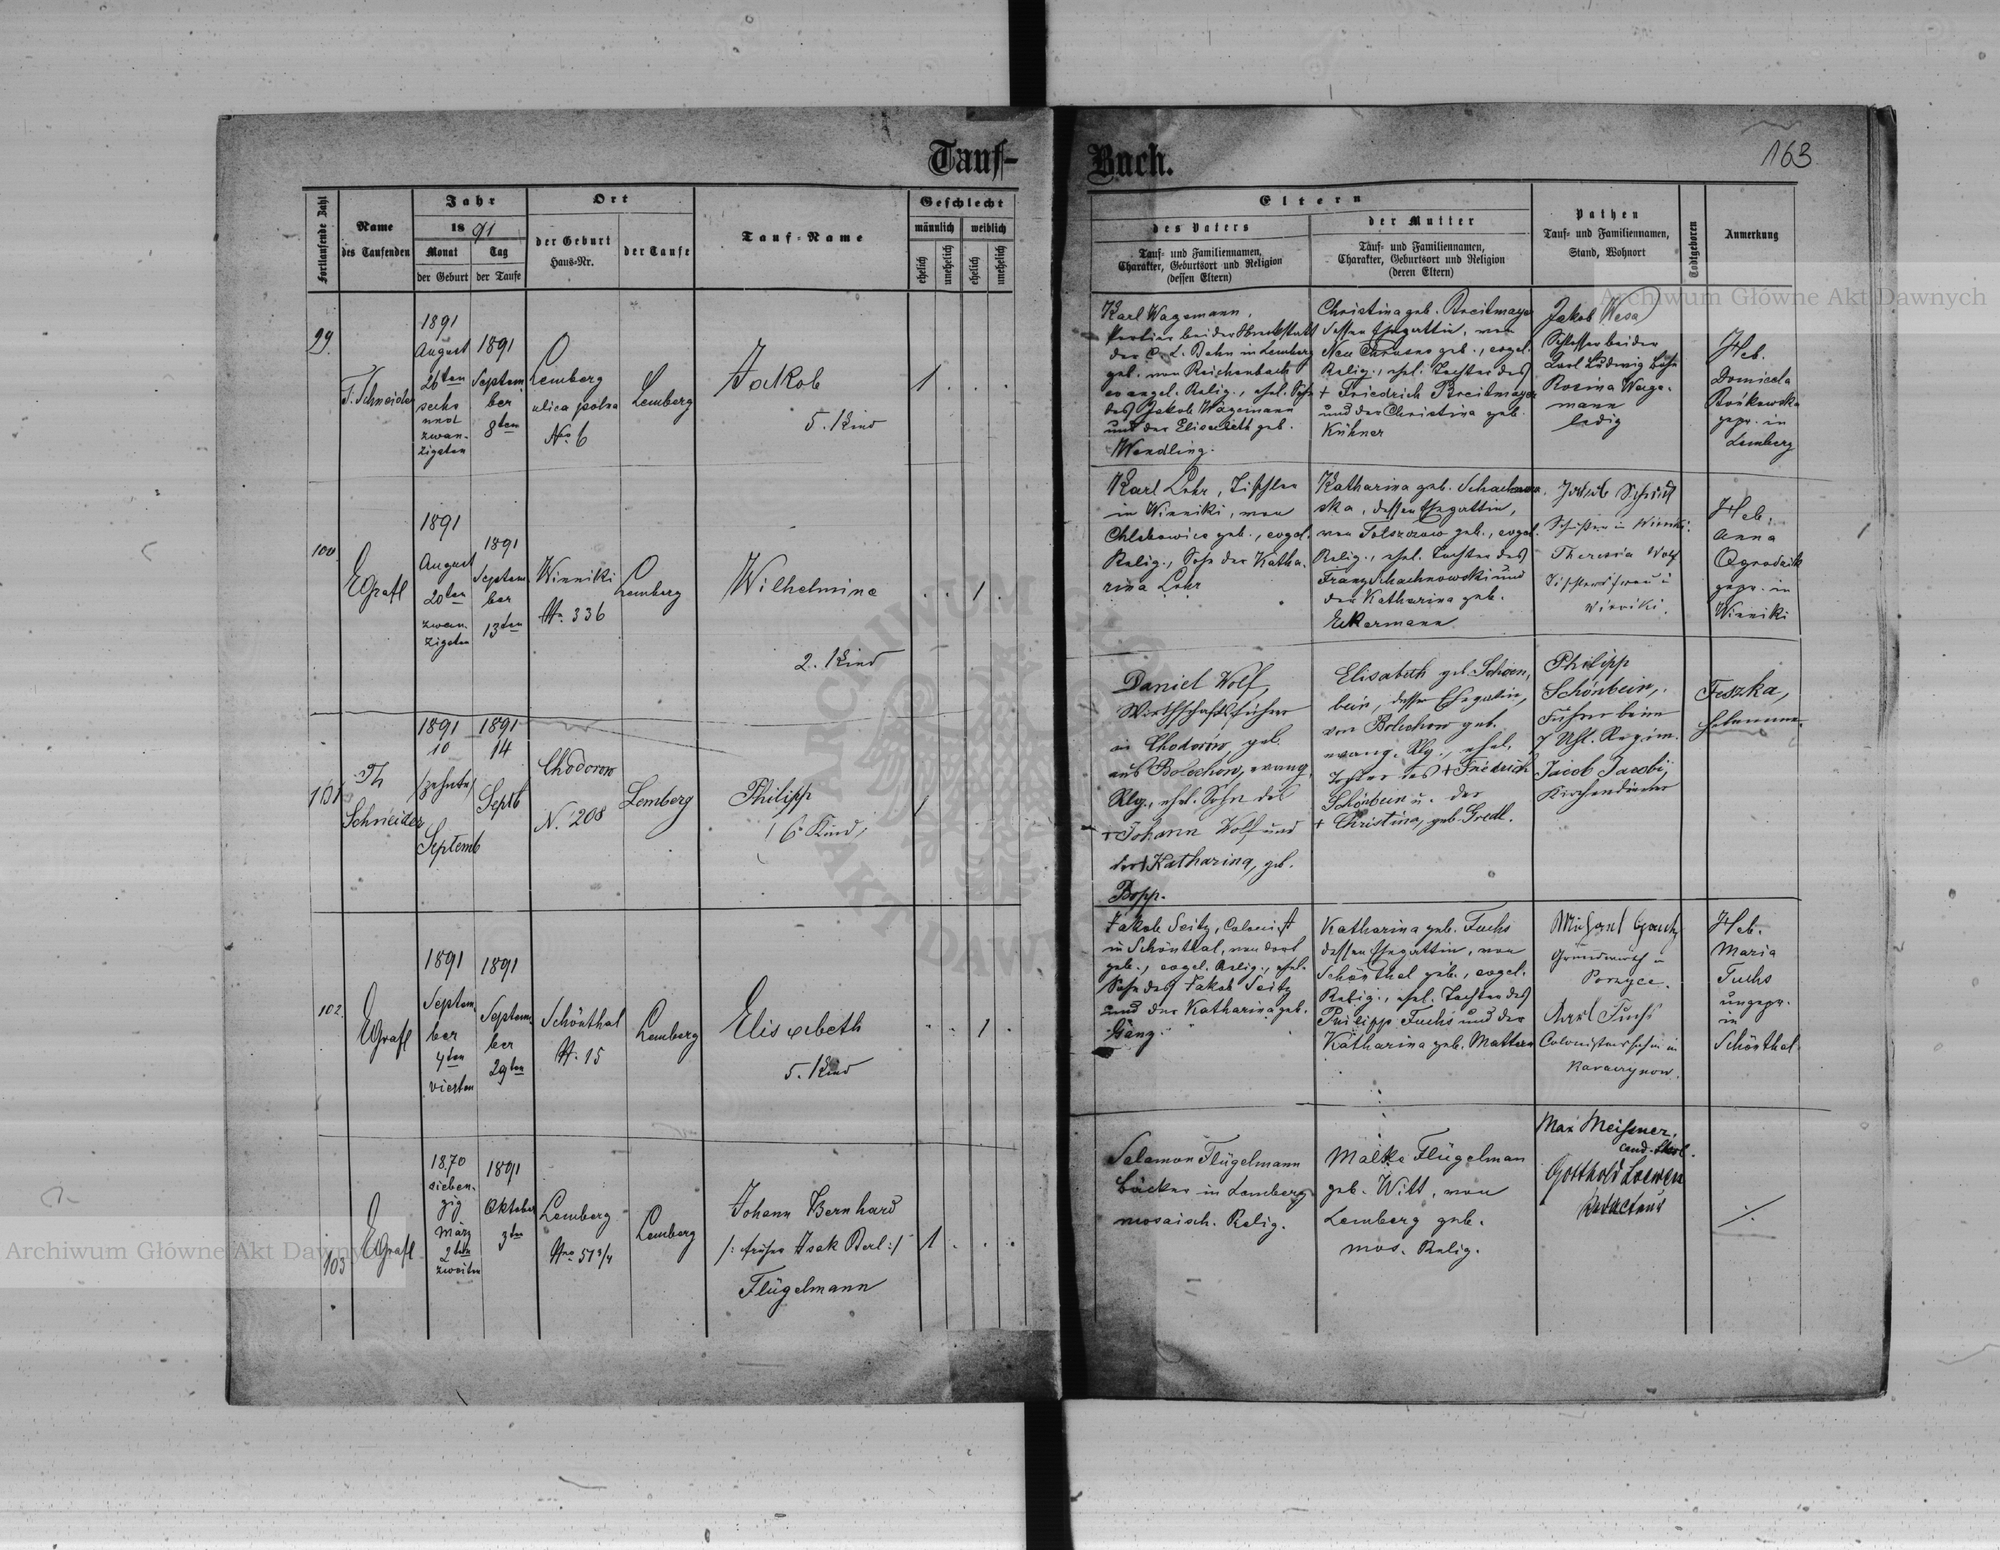 Tauf-
Buch.
163
Fortlaufende Zahl
Name
des Taufenden
Jahr
1891
Monat
Tag
der Geburt
der Taufe
Ort
der Geburt
Haus-Nr.
der Taufe
Tauf-Name
Geschlecht
männlich
weiblich
ehelich
unehelich
ehelich
unehelich
Eltern
des Vaters
Tauf- und Familiennamen,
Charakter, Geburtsort und Religion
(dessen Eltern)
der Mutter
Tauf- und Familiennamen,
Charakter, Geburtsort und Religion
(deren Eltern)
Pathen
Tauf- und Familiennamen,
Stand, Wohnort
Todtgeboren
Anmerkung
99.
T. Schneider
1891
August
26ten
sechs
und
zwan-
zigsten
1891
Septem
ber
8ten
Lemberg
ulica polna
Nro 6
Lemberg
Jakob
5. Kind
1
Karl Wagemann,
Portier bei der
der C. L. Bahn in Lemberg
geb. von Reichenbach
evangel. Relig., ehel. Sohn
des Jakob Wagemann
und der Elisabeth geb.
Wendling.
Christina geb. Breitmayer
dessen Ehegattin, von
Neu Chrusno geb., evgel.
Relig., ehel. Tochter des
+ Friedrich Breitmayer
und der Christina geb.
Kühner
Jakob Wesa
Schlosser bei der
Karl Ludwig Bahn
Rosina Wage-
mann
ledig
Heb.
Domicela
gepr. in
Lemberg
100.
EGrafl
1891
August
20ten
zwan-
zigsten
1891
Septem
ber
13ten
Winniki
Nr. 336
Lemberg
Wilhelmine
2. Kind
1
Karl Lehr, Tischler
in Winniki, von
Chlebowice geb., evgel.
Relig., Sohn der Katha-
rina Lehr
Katharina geb. Schachnow
ska, dessen Ehegattin,
von geb., evgel.
Relig., ehel. Tochter des
Franz Schachnowski und
der Katharina geb.
Eckermann
Jakob Schmidt
in Winniki.
Theresia Wolf
Tischlersfrau in
Winniki.
Heb.
Anna
Ogrodnik
gepr. in
Winniki
101
Th
Schneider
1891
10
/zehnte/
Septemb
1891
14
Septb
Chodorow
N. 208
Lemberg
Philipp
/ 6 Kind /
1
Daniel Wolf,
Wirthschaftsführer
in Chodorów, geb.
aus Bolochow, evang.
Rlg., ehel. Sohn des
+ Johann Wolf und
der + Katharina, geb.
Bopp.
Elisabeth geb. Schoen-
bein, dessen Ehegattin,
von Bolechow geb.
evang. Rlg., ehel.
Tochter des + Friedrich
Schönbein u. der
+ Christina, geb. Gredl.
Philipp
Schönbein,
Führer beim
7 Uhl. Regim.
Jacob Jacobi,
Kirchendiener
Feszka,
Hebamme.
102.
EGrafl
1891
Septem
ber
4ten
vierten
1891
Septem
ber
29ten
Schönthal
Nr. 15
Lemberg
Elisabeth
5. Kind
1
Jakob Seitz, Colonist
in Schönthal, von dort
geb., evgel. Relig., ehel.
Sohn des Jakob Seitz
und der Katharina geb.
Gäng.
Katharina geb. Fuchs
dessen Ehegattin, von
Schönthal geb., evgel.
Relig., ehel. Tochter des
Philipp Fuchs und der
Katharina geb. Mattern
Michael
Grundwirth in
Porzyce.
Karl Fuchs
Colonistensohn in
Heb.
Maria
Fuchs
ungepr.
in
Schönthal.
103
EGrafl
1870
sieben-
zig
März
2ten
zweiten
1891
Oktober
3ten
Lemberg
Nro 57 3/4
Lemberg
Johann Bernhard
/: früher Isak Berl :/
Flügelmann
1
Salamon Flügelmann
Bäcker in Lemberg
mosaisch. Relig.
Malke Flügelman
geb. Witt, von
Lemberg geb.
mos. Relig.
Max Meissner,
cand. theol.
Gotthold Loewen
Redacteur
Archiwum Główne Akt Dawnych
Archiwum Główne Akt Dawnych
ARCHIWUM
AKT DAWNYCH